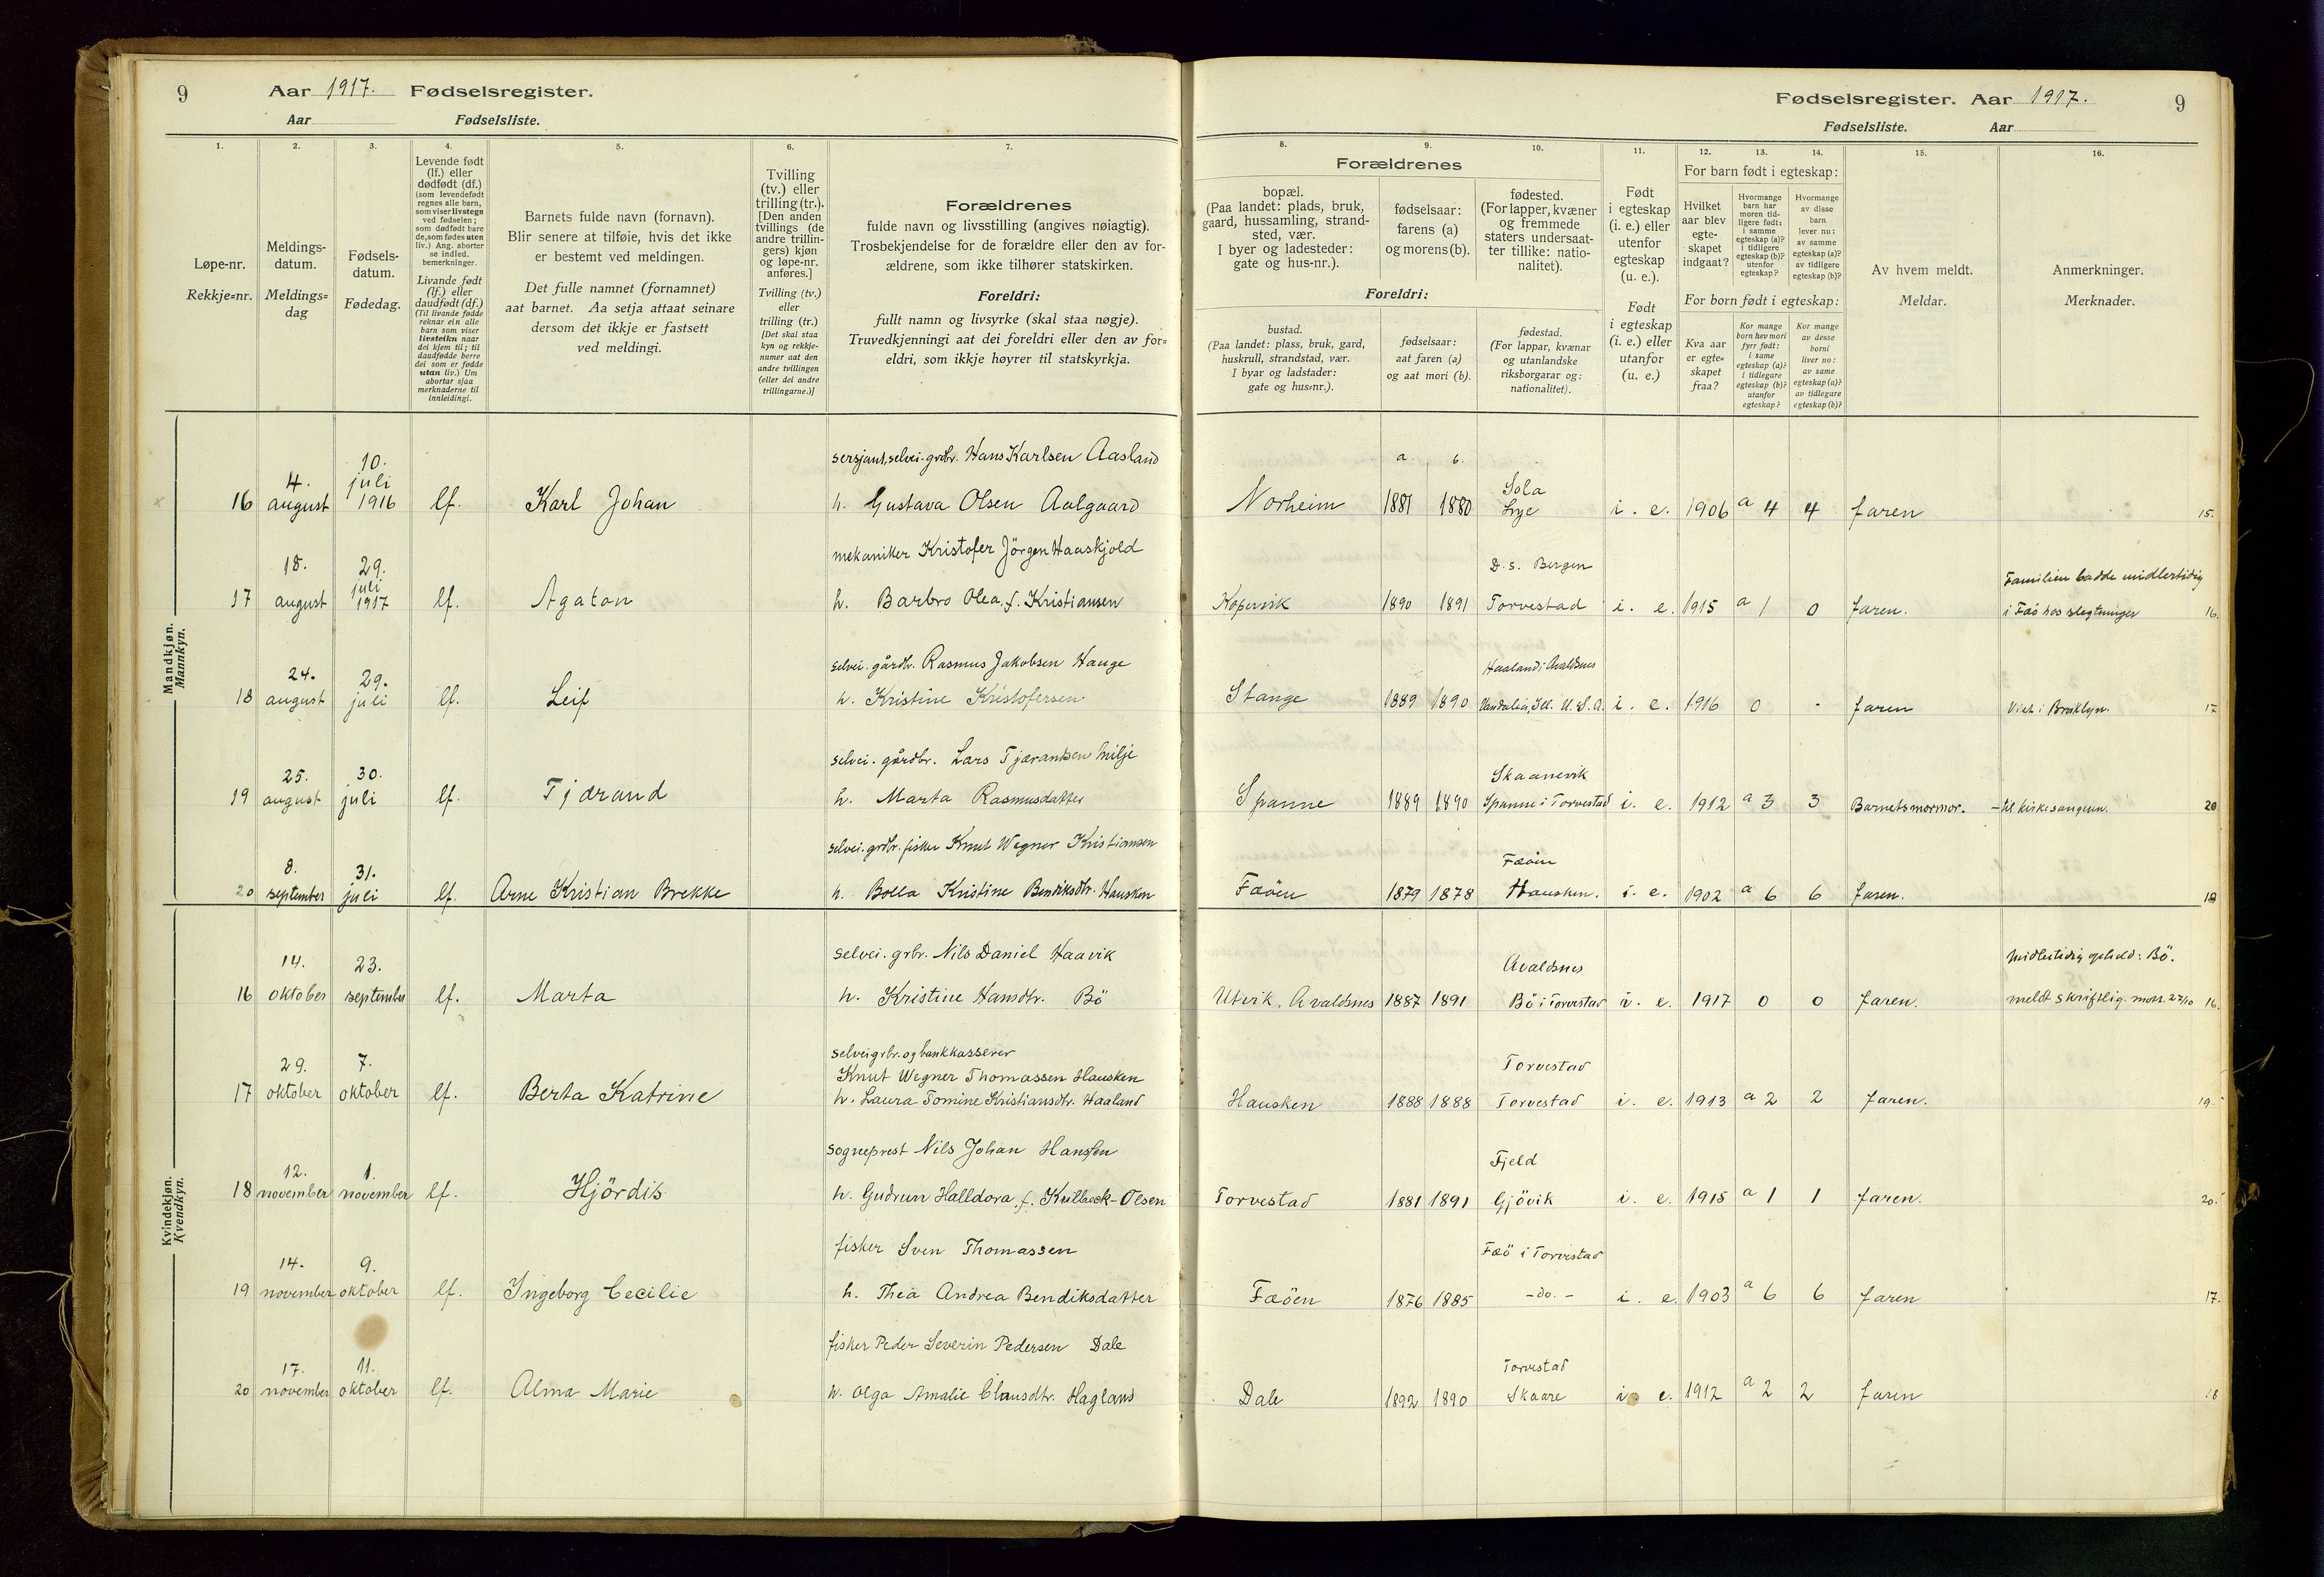 9 Aar 1917. Fødselsregister.
Aar Fødselsliste.
Fødselsregister. Aar 1917. 9
Fødselsliste. Aar
1. 2. 3. 4. 5. 6. 7. 8. 9. 10. 11. 12. 13. 14. 15. 16.
Løpe-nr.
Rekkje=nr.
Meldings-
datum.
Meldings=
dag
Fødsels-
datum.
Fødedag.
Levende født
(lf.) eller
dødfødt (df.)
(som levendefødt
regnes alle barn,
som viser livstegn
ved fødselen;
som dødfødt bare
de, som fødes uten
liv.) Ang. aborter
se indled.
bemerkninger.
Livande født
(lf.) eller
daudfødt (df.)
(Til livande fødde
reknar ein alle
barn som viser
livsteikn naar
dei kjem til; til
daudfødde berre
dei som er fødde
utan liv.) Um
abortar sjaa
merknaderne til
innleidingi.
Barnets fulde navn (fornavn).
Blir senere at tilføie, hvis det ikke
er bestemt ved meldingen.
Det fulle namnet (fornamnet)
aat barnet. Aa setja attaat seinare
dersom det ikkje er fastsett
ved meldingi.
Tvilling
(tv.) eller
trilling (tr.).
[Den anden
tvillings (de
andre trillin-
gers) kjøn
og løpe-nr.
anføres.]
Tvilling (tv.)
eller
trilling (tr.)
[Det skal staa
kyn og rekkje-
numer aat den
andre tvillingen
(eller dei andre
trillingarne.)]
Forældrenes
fulde navn og livsstilling (angives nøiagtig).
Trosbekjendelse for de forældre eller den av for-
ældrene, som ikke tilhører statskirken.
Foreldri:
fullt namn og livsyrke (skal staa nøgje).
Truvedkjenningi aat dei foreldri eller den av for=
eldri, som ikkje høyrer til statskyrkja.
Forældrenes
bopæl.
(Paa landet: plads, bruk,
gaard, hussamling, strand-
sted, vær.
I byer og ladesteder:
gate og hus-nr.).
fødselsaar:
farens (a)
og morens (b).
fødested.
(For lapper, kvæner
og fremmede
staters undersaat-
ter tillike: natio-
nalitet).
Foreldri:
bustad.
(Paa landet: plass, bruk, gard,
huskrull, strandstad, vær.
I byar og ladstader:
gate og hus=nr.).
fødselsaar:
aat faren (a)
og aat mori (b).
fødestad.
(For lappar, kvænar
og utanlandske
riksborgarar og:
nationalitet).
Født
i egteskap
(i. e.) eller
utenfor
egteskap
(u. e.).
Født
i egteskap
(i. e.) eller
utanfor
egteskap
(u. e.)
For barn født i egteskap:
Hvilket
aar blev
egte-
skapet
indgaat?
Hvormange
barn har
moren tid-
ligere født:
i samme
egteskap (a)?
i tidligere
egteskap (b)?
utenfor
egteskap?
Hvormange
av disse
barn
lever nu:
av samme
egteskap (a)?
av tidligere
egteskap (b)?
For born født i egteskap:
Kva aar
er egte=
skapet
fraa?
Kor mange
born hev mori
fyrr født:
i same
egteskap (a)?
i tidlegare
egteskap (b)?
utanfor
egteskap?
Kor mange
av desse
borni
liver no:
av same
egteskap (a)?
av tidlegare
egteskap (b)?
Av hvem meldt.
Meldar.
Anmerkninger.
Merknader.
Mandkjøn.
Mannkyn.
sersjant, selvei. grdbr. Hans Karlsen Aasland a. b. Sola
16 4. august 10. juli 1916 lf. Karl Johan h. Gustava Olsen Aalgaard Norheim 1881 1880 Lye i. e. 1906 a 4 4 faren 15.
mekaniker Kristofer Jörgen Haaskjold D. s. Bergen Familien hadde midlertidig
17 18. august 29. juli 1917 lf. Agaton h. Barbro Olea, f. Kristiansen Kopervik 1890 1891 Torvestad i. e. 1915 a 1 0 faren. i Fæö hos slegtninger 16.
selvei. gårdbr. Rasmus Jakobsen Hauge Haaland i Avaldsnes
18 24. august 29. juli lf. Leif h. Kristine Kristofersen Stange 1889 1890 Vandalia, Ill. U.S.A. i. e. 1916 0 - faren Viet i Brooklyn. 17
selvei. gårdbr. Lars Tjærandsen Milje Skaanevik
19 25. august 30. juli lf. Tjærand h. Marta Rasmusdatter Spanne 1889 1890 Spanne i Torvestad i. e. 1912 a 3 3 Barnets mormor. - til kirkesangeren. 20
selvei. grdbr. fisker Knut Wegner Kristiansen Fæöen
20 8. september 31. juli lf. Arne Kristian Brekke h. Bolla Kristine Bendiksdtr. Hausken Fæöen 1879 1878 Hausken. i. e. 1902 a 6 6 faren. 18
Kvindekjøn.
Kvendkyn.
selvei. grbr. Nils Daniel Haavik Avaldsnes Midlertidig ophold: Bö.
16 14. oktober 23. september lf. Marta h. Kristine Hansdtr. Bö Utvik, Avaldsnes 1887 1891 Bö i Torvestad i. e. 1917 0 0 faren. meldt skriftlig. mott. 27/10 16.
selvei grbr. og bankkasserer
Knut Wegner Thomassen Hausken Torvestad
17 29. oktober 7. oktober lf. Berta Katrine h. Laura Tomine Kristiansdtr. Haaland Hausken 1888 1888 Torvestad i. e. 1913 a 2 2 faren. 19.
sogneprest Nils Johan Hansen Fjeld
18 12. november 1. november lf. Hjördis h. Gudrun Halldora, f. Kulback-Olsen Torvestad 1881 1891 Gjövik i. e. 1915 a 1 1 faren. 20.
fisker Sven Thomassen Fæö i Torvestad
19 14. november 9. oktober lf. Ingeborg Cecilie h. Thea Andrea Bendiksdatter Fæöen 1876 1885 -do.- i. e. 1903 a 6 6 faren 17.
fisker Peder Severin Pedersen Dale Torvestad
20 17. november 11. oktober lf. Alma Marie h. Olga Amalie Clausdtr. Hagland Dale 1892 1890 Skaare i. e. 1912 a 2 2 faren 18